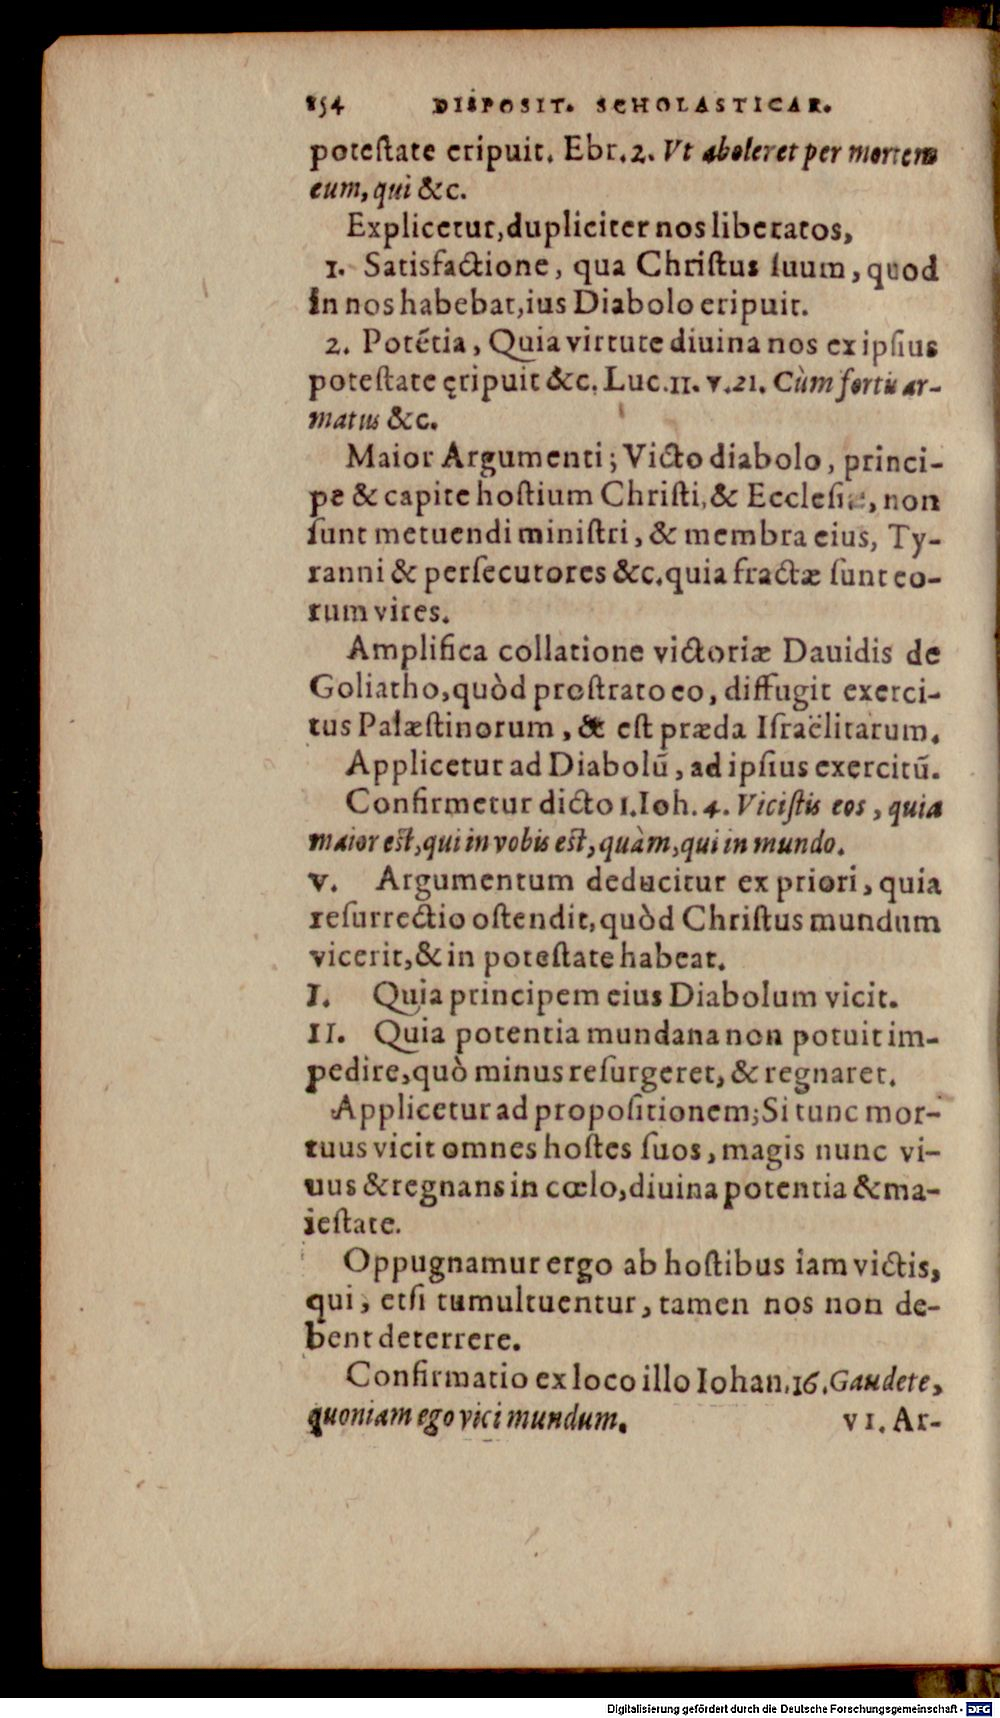 154 DISPOSIT. SCHOLASTICAR.
poteſtate eripuit. Ebr.2. Vt aboleret per mortem
eum, qui &c.
Explicetur, dupliciter nos liberatos,
1. Satisfactione, qua Chriſtus ſuum, quod
in nos habebat, ius Diabolo eripuit.
2. Potẽtia, Quia virtute diuina nos ex ipſius
poteſtate ęripuit &c. Luc.11. v.21. Cùm fortis ar-
matus &c.
Maior Argumenti; Victo diabolo, princi-
pe & capite hoſtium Chriſti, & Eccleſiæ, non
ſunt metuendi miniſtri, & membra eius, Ty-
ranni & perſecutores &c. quia fractæ ſunt eo-
rum vires.
Amplifica collatione victoriæ Dauidis de
Goliatho, quòd proſtrato eo, diffugit exerci-
tus Palæſtinorum, & eſt præda Iſraëlitarum.
Applicetur ad Diabolũ, ad ipſius exercitũ.
Confirmetur dicto 1. Ioh. 4. Viciſtis eos, quia
maior eſt, qui in vobis eſt, quàm, qui in mundo.
V. Argumentum deducitur ex priori, quia
reſurrectio oſtendit, quòd Chriſtus mundum
vicerit, & in poteſtate habeat.
I. Quia principem eius Diabolum vicit.
II. Quia potentia mundana non potuit im-
pedire, quò minus reſurgeret, & regnaret.
Applicetur ad propoſitionem; Si tunc mor-
tuus vicit omnes hoſtes ſuos, magis nunc vi-
uus & regnans in cœlo, diuina potentia & ma-
ieſtate.
Oppugnamur ergo ab hoſtibus iam victis,
qui, etſi tumultuentur, tamen nos non de-
bent deterrere.
Confirmatio ex loco illo Iohan. 16. Gaudete,
quoniam ego vici mundum. VI. Ar-
Digitalisierung gefördert durch die Deutsche Forschungsgemeinschaft - DFG